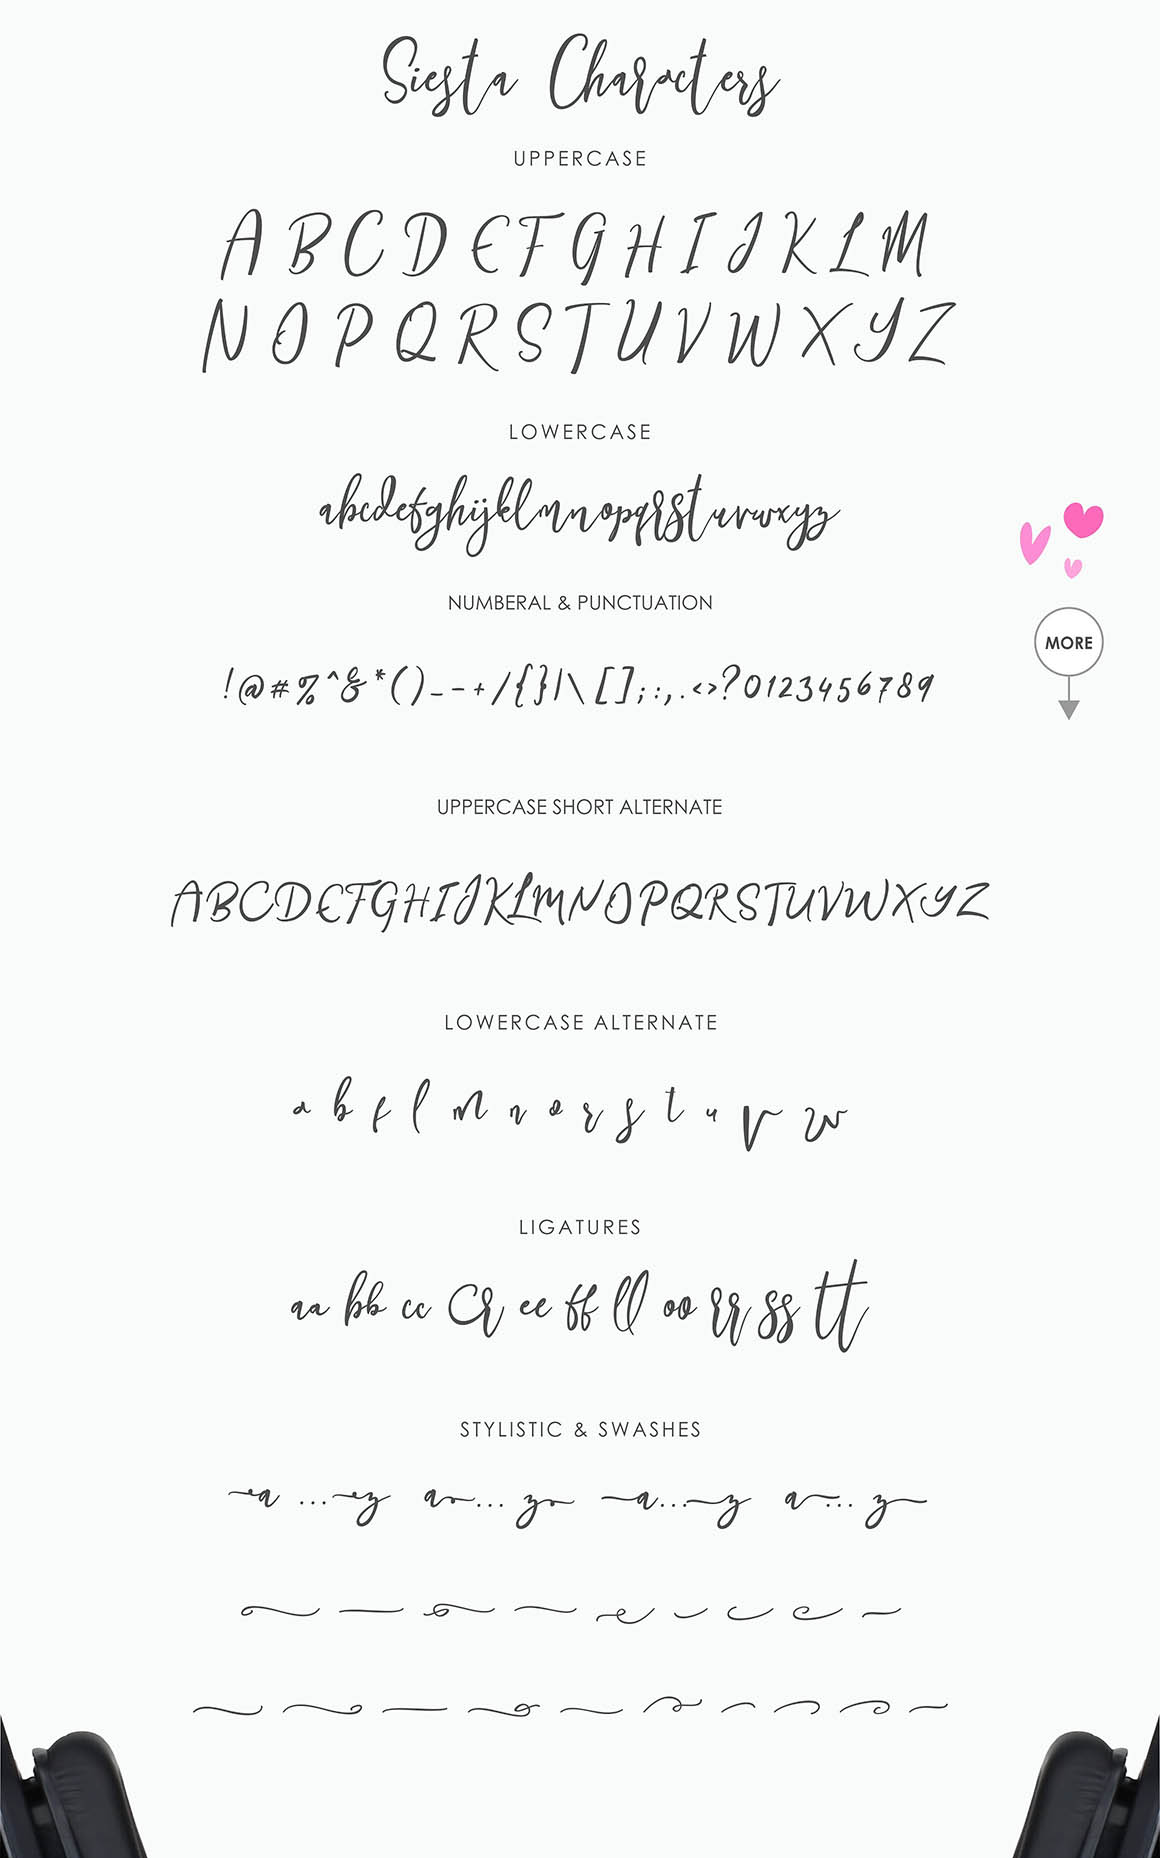 Siesta Characters
UPPERCASE
ABCDEFGHIJKLM
NOPQRSTUVWXYZ
LOWERCASE
abcdefghijklmnopqrstuvwxyz
NUMBERAL & PUNCTUATION
!@#%^&*()_-+/{}|\[];:,.<>?0123456789
MORE
UPPERCASE SHORT ALTERNATE
ABCDEFGHIJKLMNOPQRSTUVWXYZ
LOWERCASE ALTERNATE
a b f l m n o r s t u v w
LIGATURES
aa bb cc Cr ee ff ll oo rr ss tt
STYLISTIC & SWASHES
a ... z a ... z a ... z a ... z